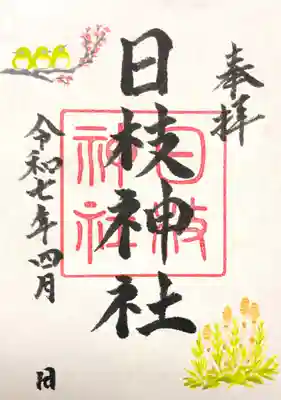 奉拝
日枝神社
日枝
神社
令和七年四月
日